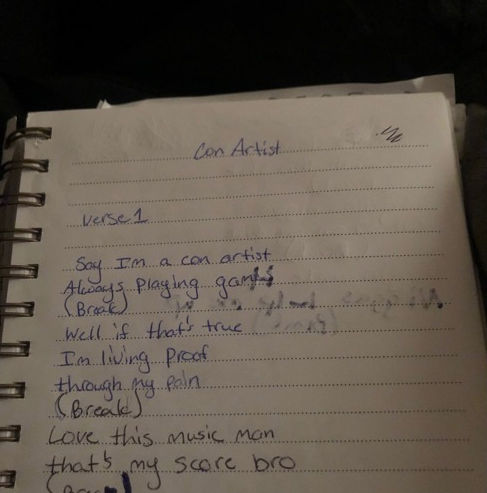 Con Artist
Verse 1
Say I'm a con artist
Always Playing games
(Break)
Well if that's true
I'm living Proof
through my pain
(Break)
Love this music man
that's my score bro